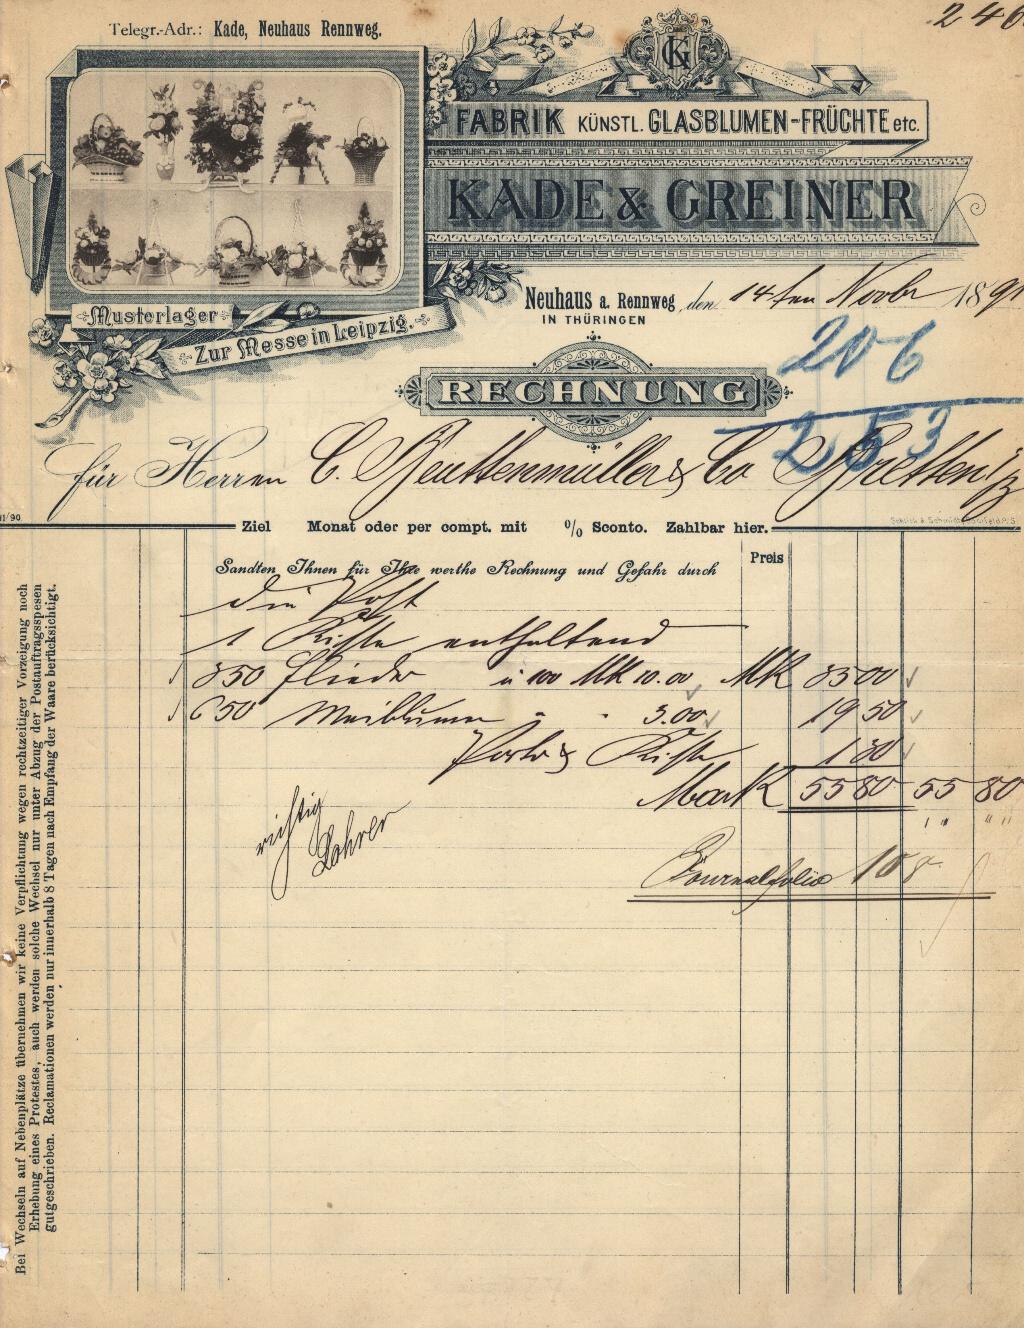 246
Telegr.-Adr.: Kade, Neuhaus Rennweg.
GK
FABRIK KÜNSTL. GLASBLUMEN-FRÜCHTE etc.
KADE & GREINER
Musterlager
Zur Messe in Leipzig.
Neuhaus a. Rennweg, den 14ten Novbr 1891
IN THÜRINGEN
206
253
RECHNUNG
für Herren C. Beuttenmüller & Co Bretten
11/90
Ziel Monat oder per compt. mit % Sconto. Zahlbar hier.
Sandten Ihnen für Ihre werthe Rechnung und Gefahr durch Preis
die Post
1 Kiste enthaltend
350 Flieder à 100 Mk 10.00 Mk 35 00
650 Maiblumen " " 3.00 19 50
Porto & Kiste 1 30
Mark 55 80 55 80
richtig
Lohrer
Journalfolio 108
Bei Wechseln auf Nebenplätze übernehmen wir keine Verpflichtung wegen rechtzeitiger Vorzeigung noch
Erhebung eines Protestes, auch werden solche Wechsel nur unter Abzug der Postauftragsspesen
gutgeschrieben. Reclamationen werden nur innerhalb 8 Tagen nach Empfang der Waare berücksichtigt.